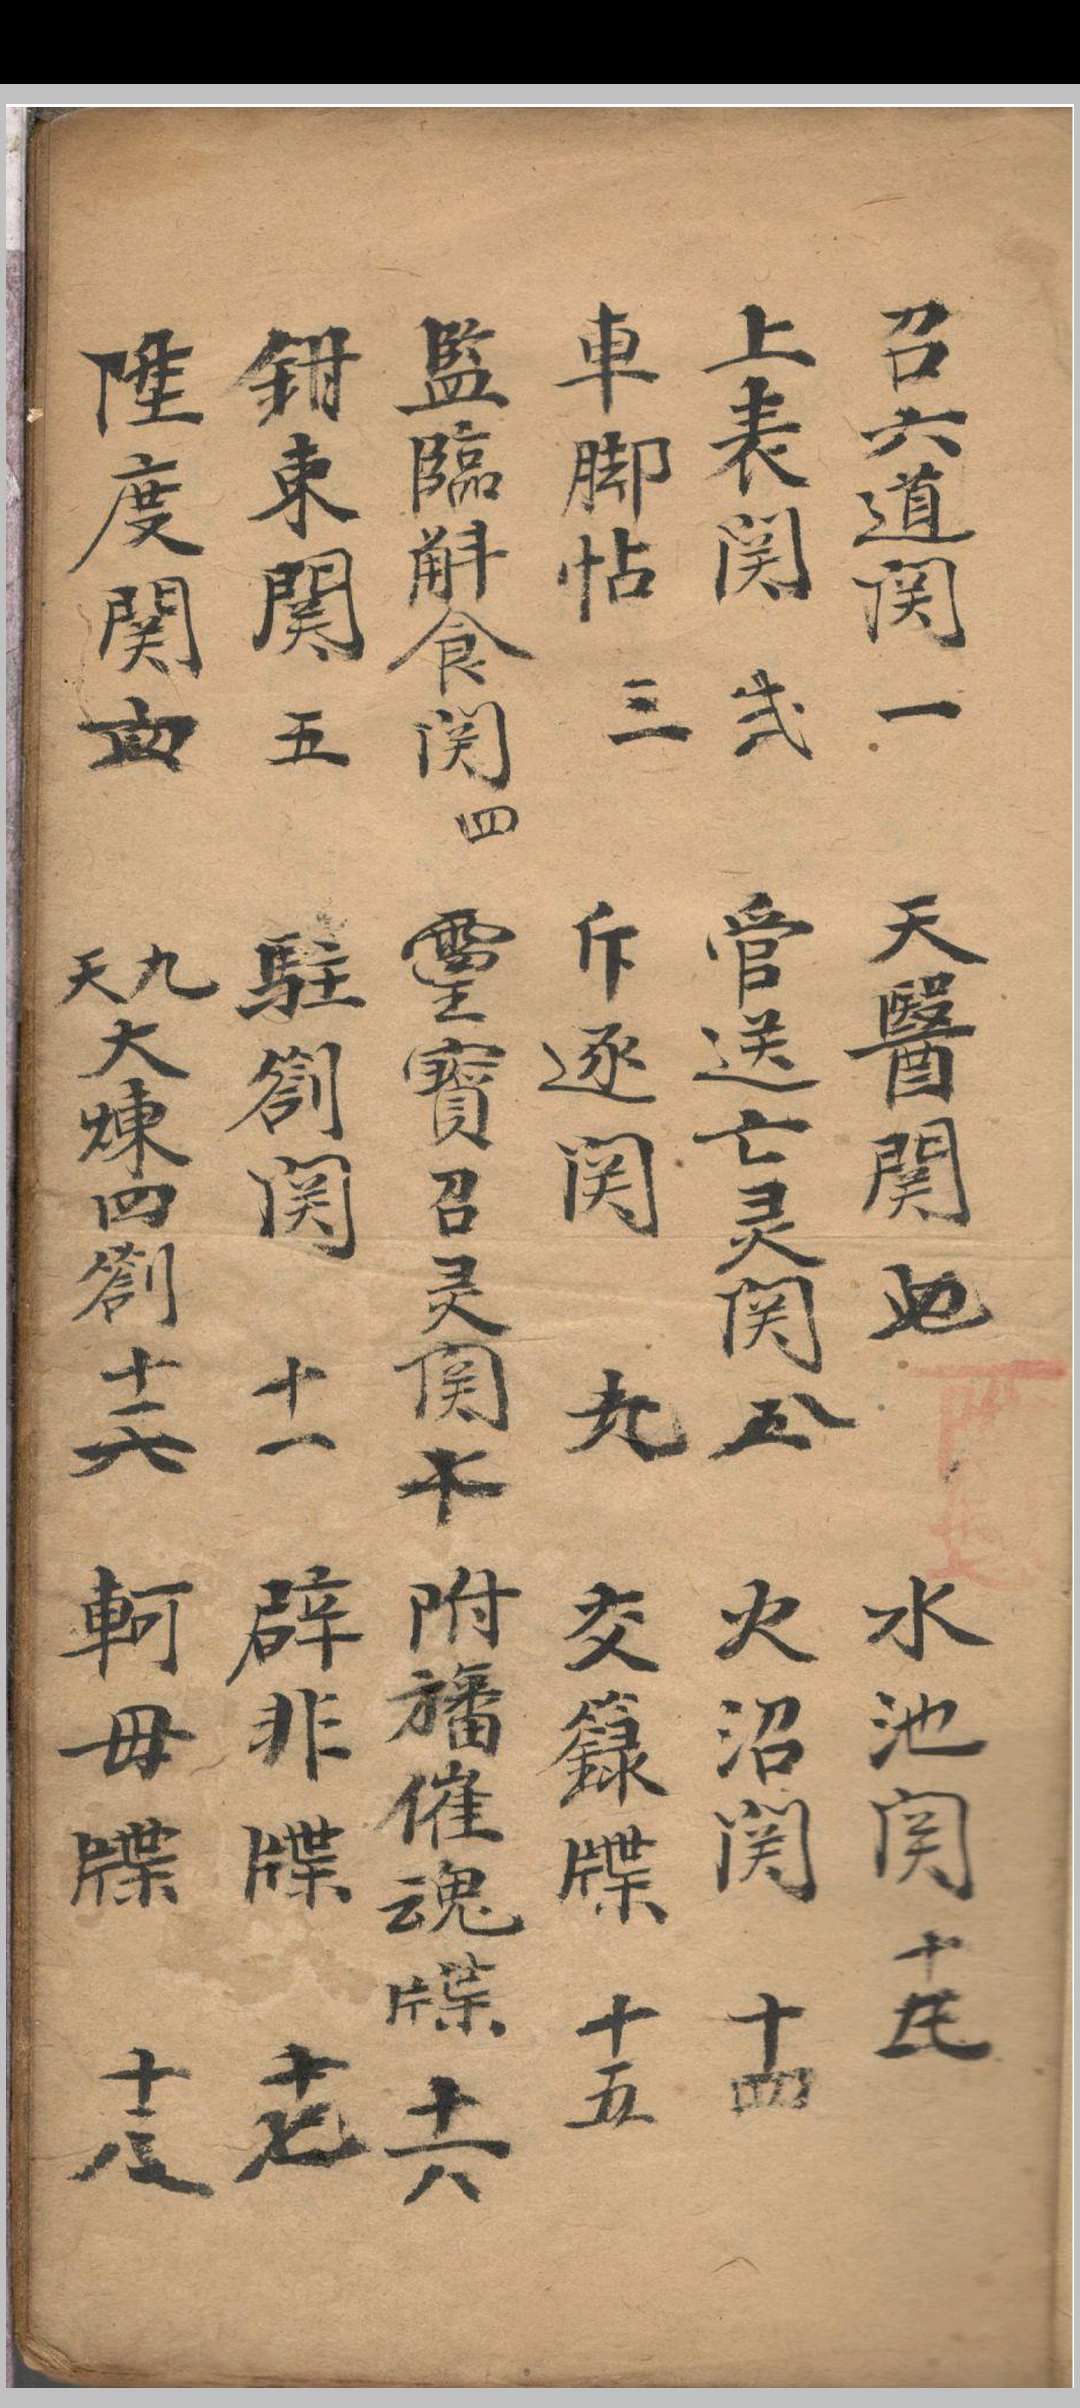 召六道関一
上表関 弍
車脚帖 三
監臨斛食関四
鉗束関 五
陞度関
天醫関
管送亡灵関
斥逐関 九
靈寳召灵関
駐劄関 十一
九天大煉四劄
水池関
火沼関 十四
交籙牒 十五
附旛催魂牒 十六
辟非牒 十七
軻毋牒 十八